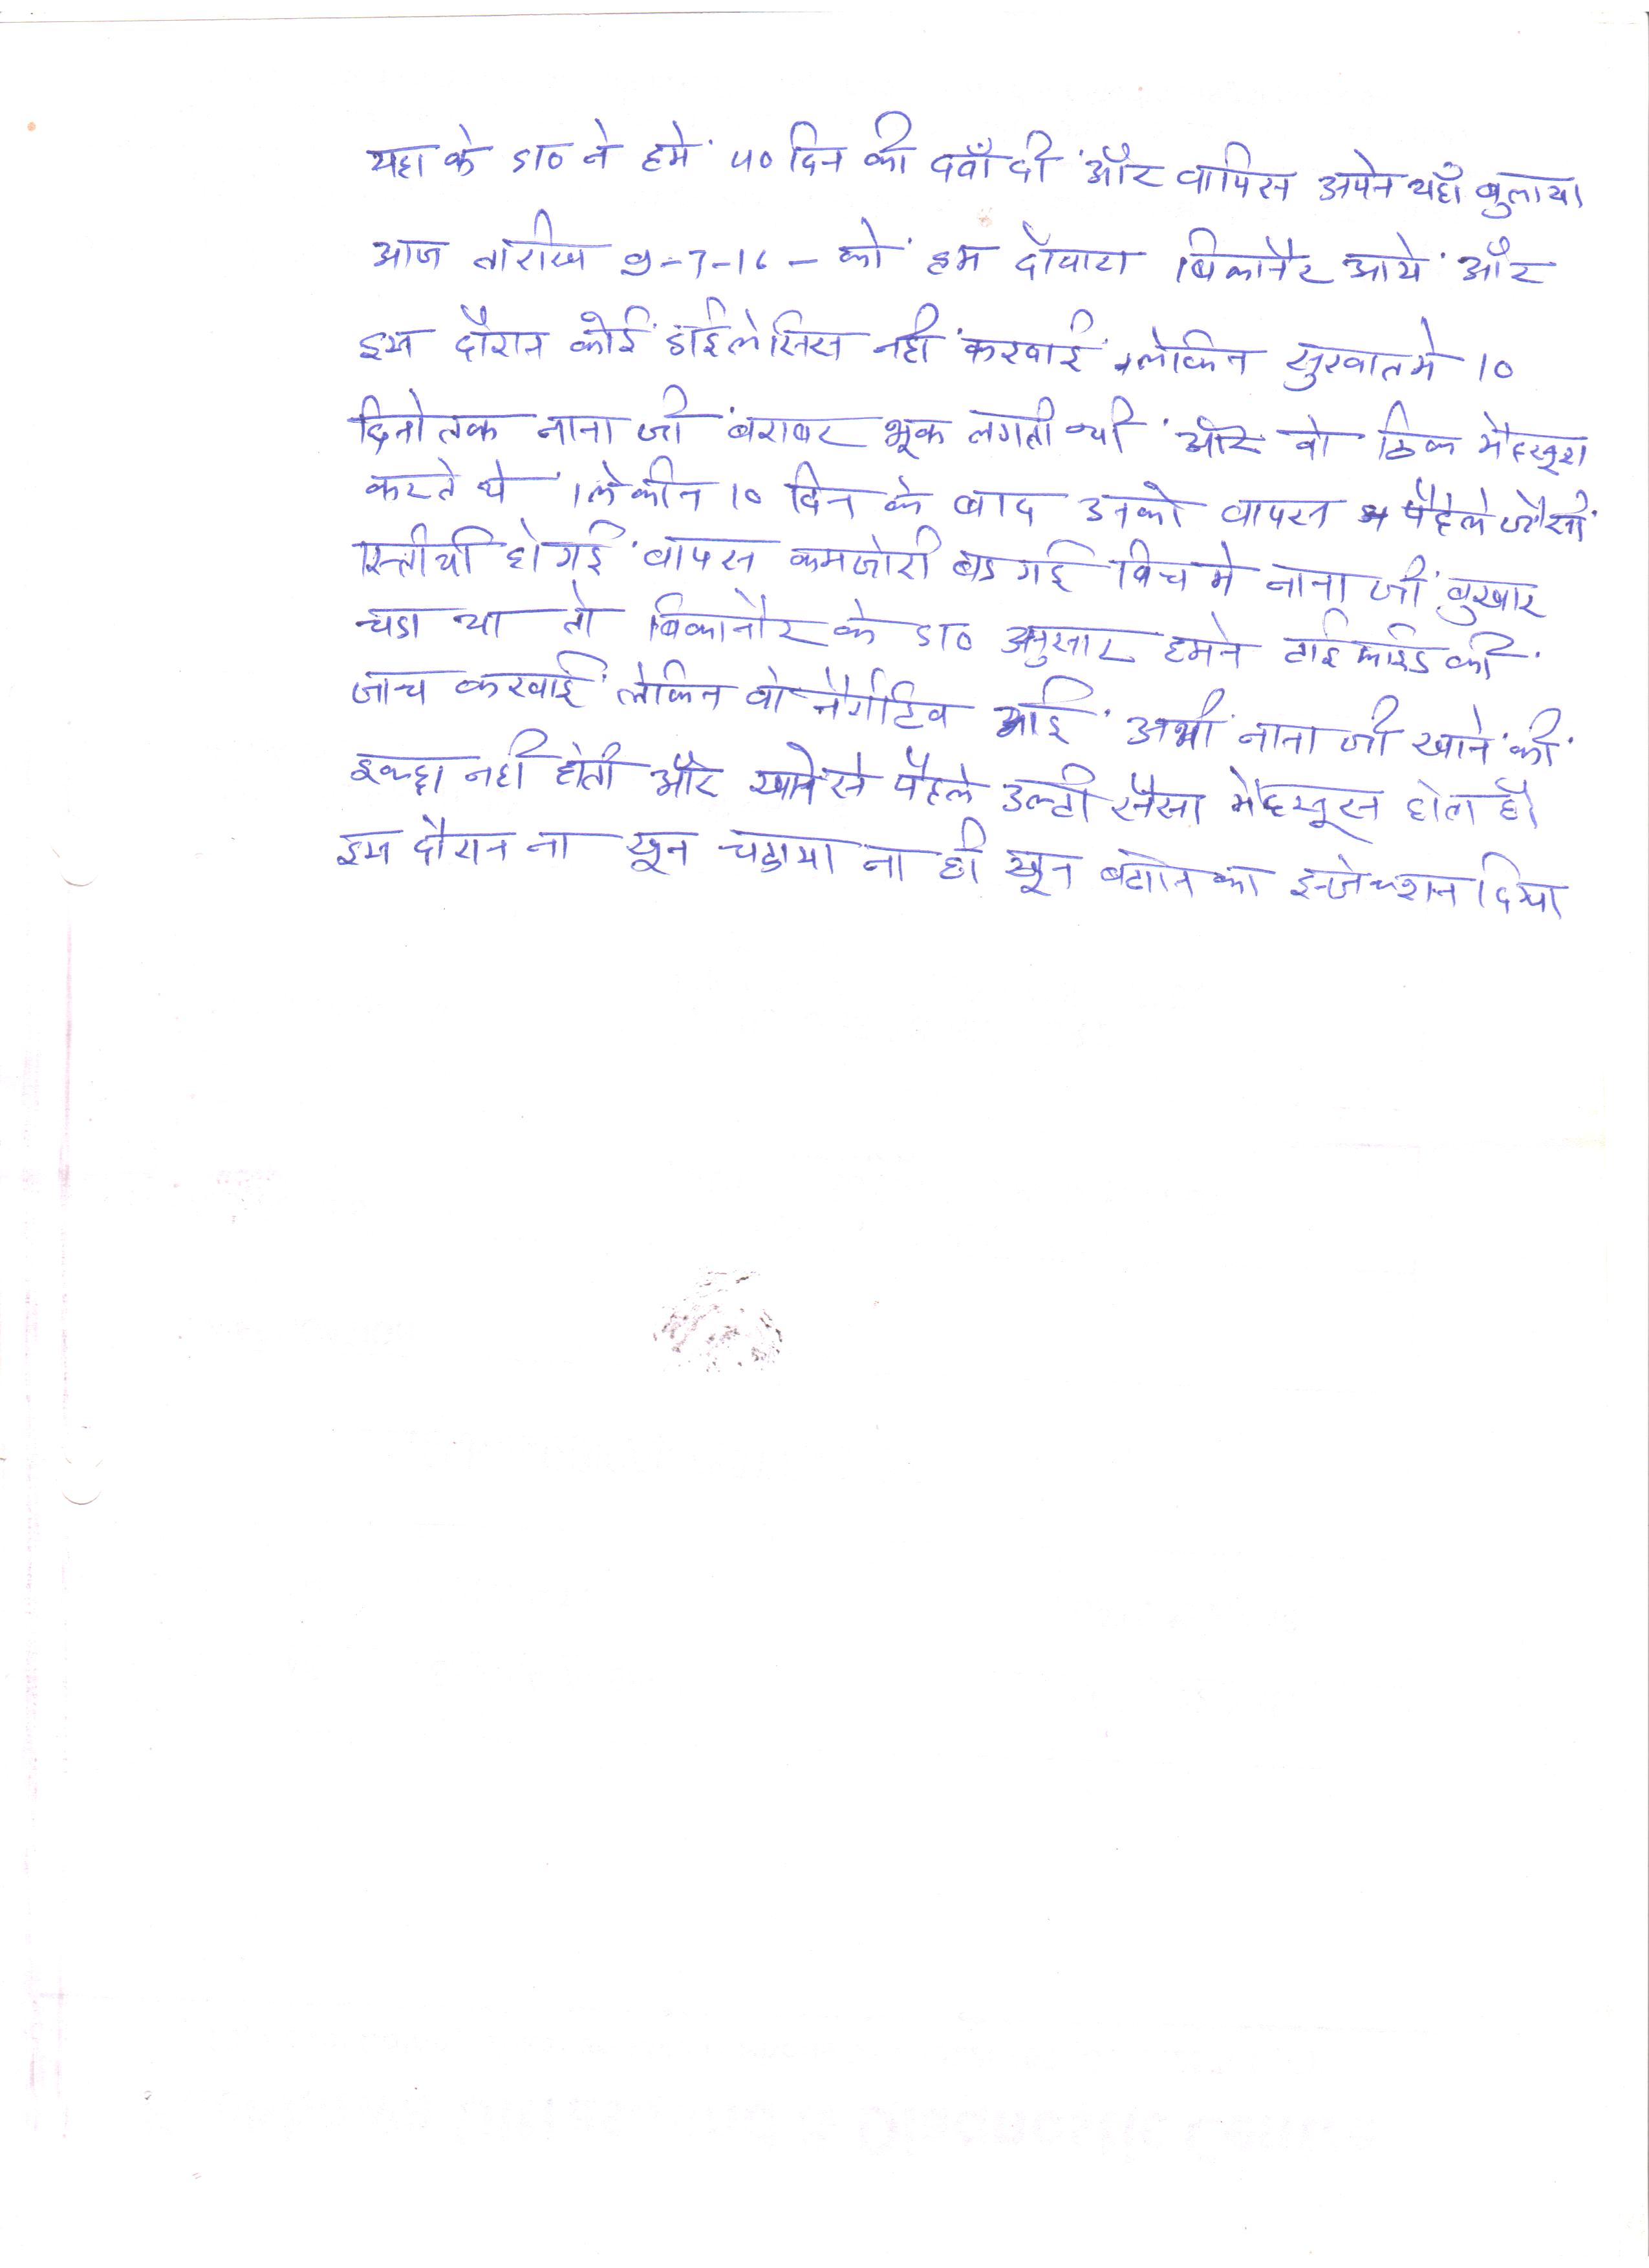 यहा के डा० ने हमे 40 दिन की दवाँ दी और वापिस अपेन यहाँ बुलाया
आज तारीख 9-7-16 - को हम दोवारा बिकानैर आये और
इस दौरान कोई डाईलेसिस नही करवाई । लेकिन सुरवात मे 10
दिनो तक नाना जी बराबर भूक लगती थी और वो ठिक मैहसूश
करते थे । लेकीन 10 दिन के बाद उनको वापस पैहले जैसी
स्तीथी होगई वापस कमजोरी बड गई विच मे नाना जी बुखार
चडा था तो बिकानैर के डा० अनुसार हमने टाईफाईड की
जाच करवाई लेकिन वो नैगेटिव आई अभी नाना जी खाने की
इच्छा नही होती और खाने से पैहले उल्टी मैहसूस होता है
इस दौरान ना खून चढाया ना ही खून बढाने का इन्जेक्शन दिया